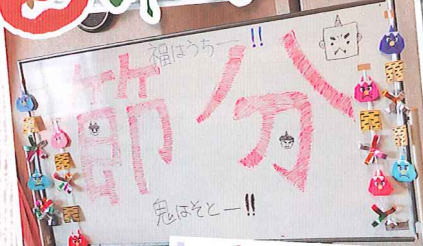 福はうちー!!
節分
鬼はそとー!!